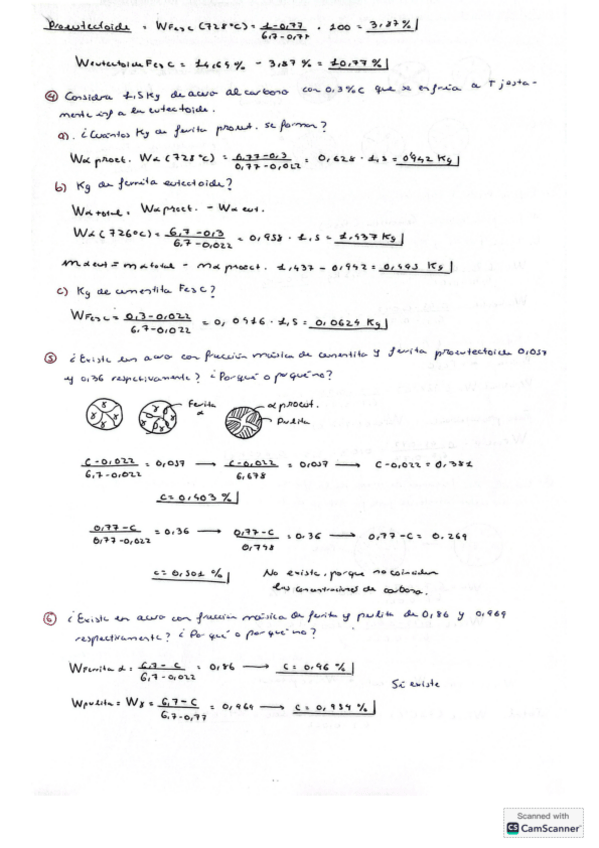 Proeutectoide = WFe3C (728ºC) = 1-0,77 / 6,7-0,77 · 100 = 3,87%
Weutectoide Fe3C = 14,64% - 3,87% = 10,77%
④ Considera 1,5 Kg de acero al carbono con 0,3%C que se enfria a T justa-
mente inf a la eutectoide.
a). ¿Cuántos Kg de ferrita proeut. se forman?
Wα proect. Wα (728ºC) = 0,77-0,3 / 0,77-0,022 = 0,628 · 1,5 = 0,942 Kg
b) Kg de ferrita eutectoide?
Wα total = Wα proect. - Wα eut.
Wα (726ºC) = 6,7-0,3 / 6,7-0,022 = 0,958 · 1,5 = 1,437 Kg
mα eut = mα total - mα proect. 1,437 - 0,942 = 0,495 Kg
c) Kg de cementita Fe3C?
WFe3C = 0,3-0,022 / 6,7-0,022 = 0,0416 · 1,5 = 0,0624 Kg
⑤ ¿Existe un acero con fracción másica de cementita y ferrita proeutectoide 0,057
y 0,36 respectivamente? ¿Por qué o por qué no?
γ γ γ γ Ferrita α α proeut. Perlita
C-0,022 / 6,7-0,022 = 0,057 → C-0,022 / 6,678 = 0,057 → C-0,022 = 0,381
C = 0,403 %
0,77-C / 0,77-0,022 = 0,36 → 0,77-C / 0,748 = 0,36 → 0,77-C = 0.269
C = 0,501 % No existe, porque no coinciden
las concentraciones de carbono.
⑥ ¿Existe un acero con fracción másica de ferrita y perlita de 0,86 y 0,969
respectivamente? ¿Por qué o por qué no?
WFerrita α = 6,7-C / 6,7-0,022 = 0,86 → C = 0,96 %
Si existe
Wperlita = Wγ = 6,7-C / 6,7-0,77 = 0,969 → C = 0,954 %
Scanned with
CS CamScanner